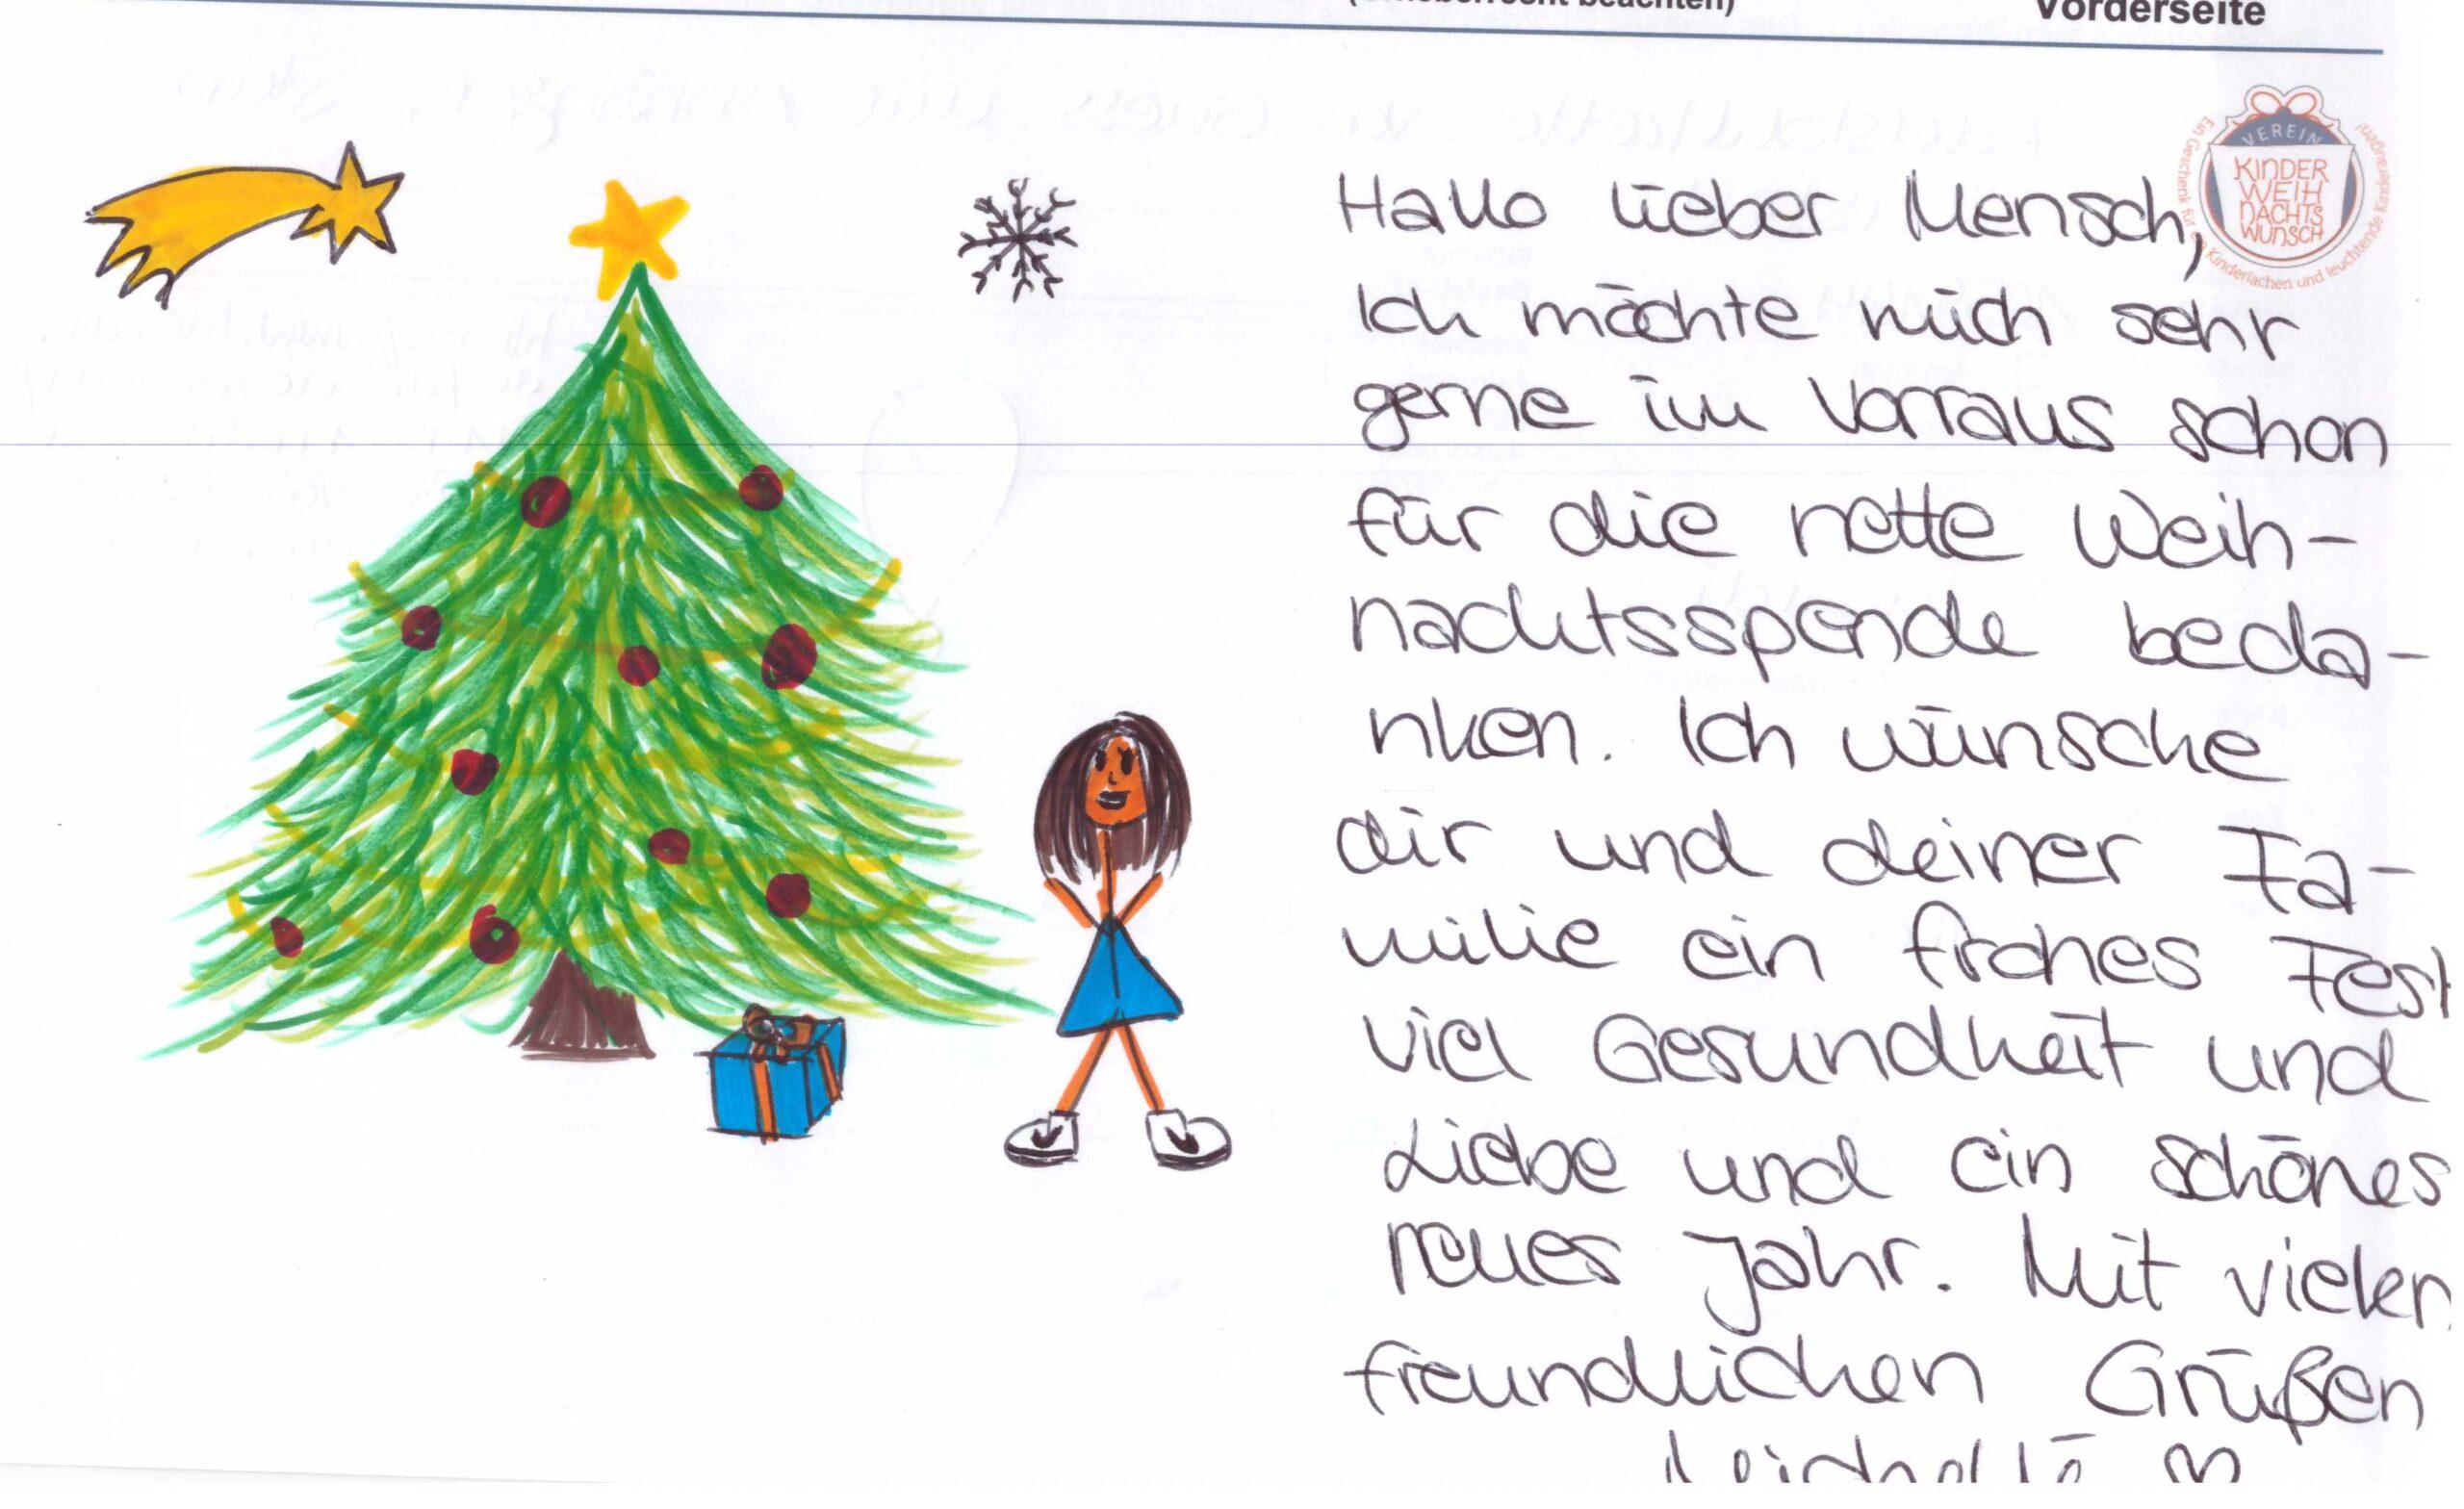 (Urheberrecht beachten)
Vorderseite
VEREIN
KINDER
WEIH
NACHTS
WUNSCH
Ein Geschenk für Kinderlachen und leuchtende Kinderaugen!
Hallo lieber Mensch,
Ich möchte mich sehr
gerne im Vorraus schon
für die nette Weih-
nachtsspende beda-
nken. Ich wünsche
dir und deiner Fa-
milie ein frohes Fest
viel Gesundheit und
Liebe und ein schönes
neues Jahr. Mit vielen
freundlichen Grüßen